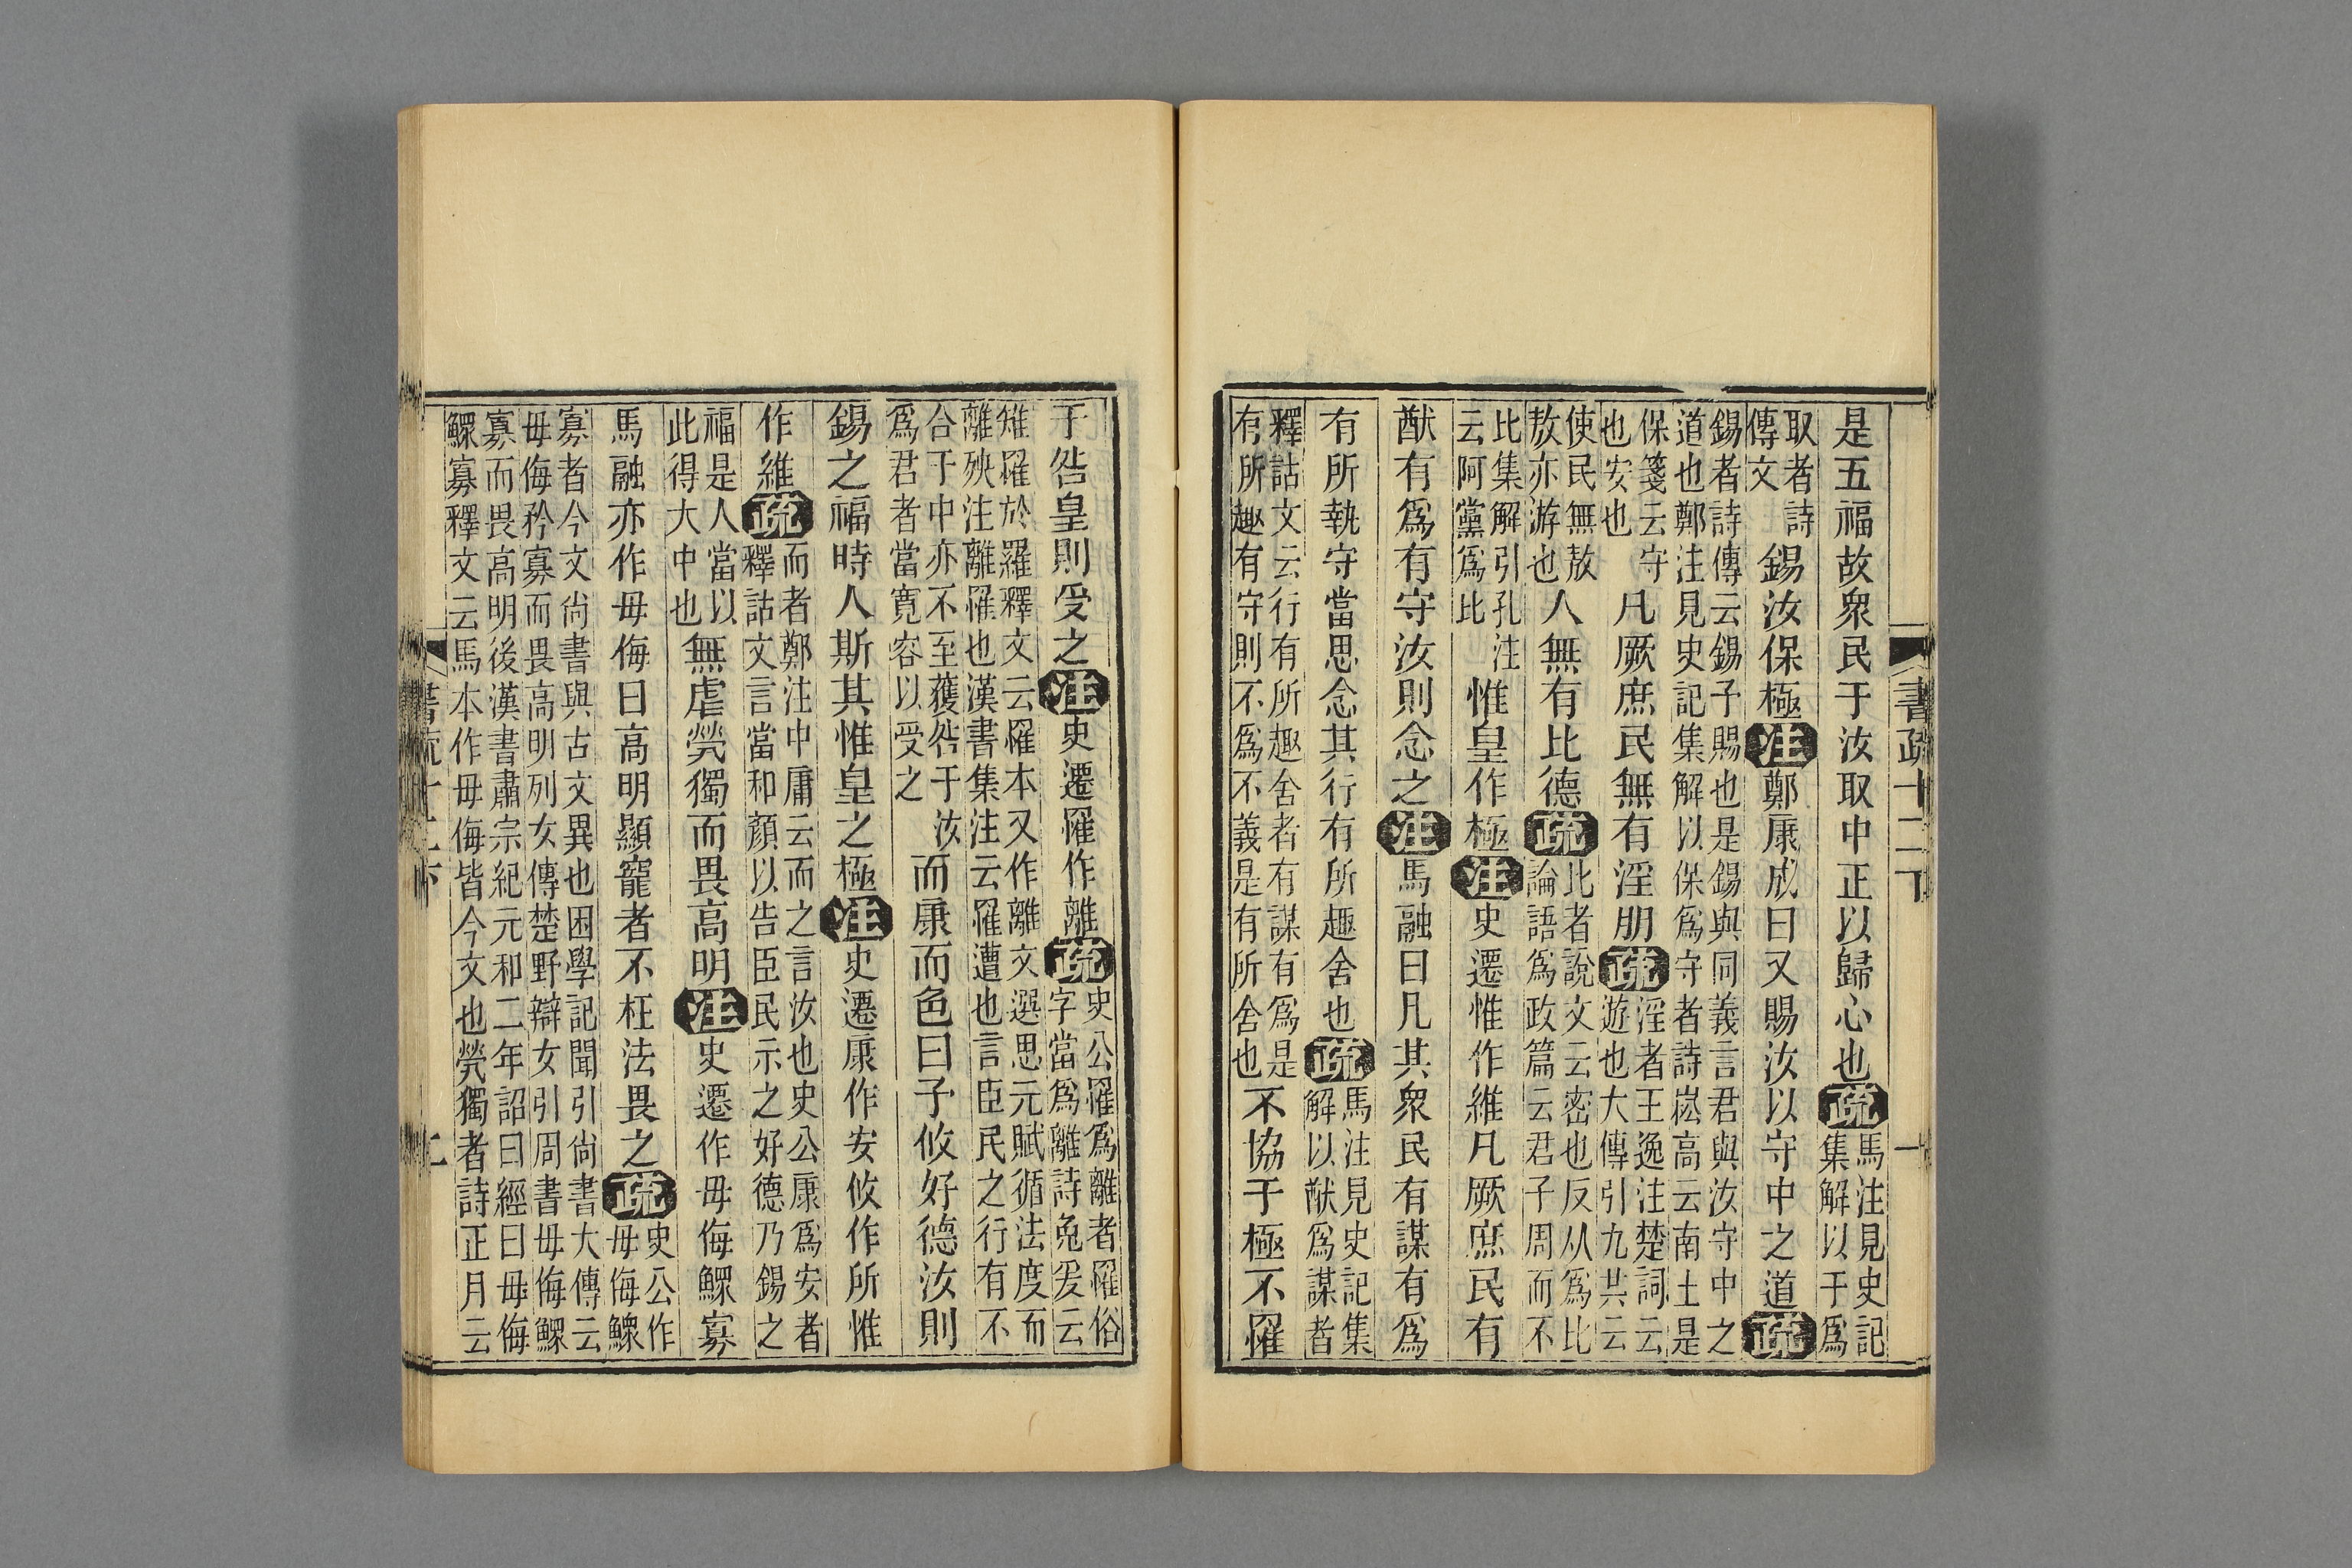 書疏十二下
一
是五福故衆民于汝取中正以歸心也疏馬注見史記集解以于爲
取者詩傳文錫汝保極注鄭康成曰又賜汝以守中之道疏
錫者詩傳云錫予賜也是錫與同義言君與汝守中之
道也鄭注見史記集解以保爲守者詩崧高云南土是
保箋云守也安也凡厥庶民無有淫朋疏淫者王逸注楚詞云遊也大傳引九共云
使民無敖敖亦游也人無有比德疏比者說文云密也反从爲比論語爲政篇云君子周而不
比集解引孔注云阿黨爲比惟皇作極注史遷惟作維凡厥庶民有
猷有爲有守汝則念之注馬融曰凡其衆民有謀有爲
有所執守當思念其行有所趣舍也疏馬注見史記集解以猷爲謀者
釋詁文云行有所趣舍者有謀有爲是有所趣有守則不爲不義是有所舍也不協于極不罹
于咎皇則受之注史遷罹作離疏史公罹爲離者罹俗字當爲離詩兔爰云
雉罹於羅釋文云罹本又作離文選思元賦循法度而
離殃注離罹也漢書集注云罹遭也言臣民之行有不
合于中亦不至蒦咎于汝爲君者當寬容以受之而康而色曰予攸好德汝則
錫之福時人斯其惟皇之極注史遷康作安攸作所惟
作維疏而者鄭注中庸云而之言汝也史公康爲安者釋詁文言當和顏以告臣民示之好德乃錫之
福是人當以此得大中也無虐煢獨而畏高明注史遷作毋侮鰥寡
馬融亦作毋侮曰高明顯寵者不枉法畏之疏史公作毋侮鰥
寡者今文尚書與古文異也困學記聞引尚書大傳云
毋侮矜寡而畏高明列女傳楚野辯女引周書毋侮鰥
寡而畏高明後漢書肅宗紀元和二年詔曰經曰毋侮
鰥寡釋文云馬本作毋侮皆今文也煢獨者詩正月云